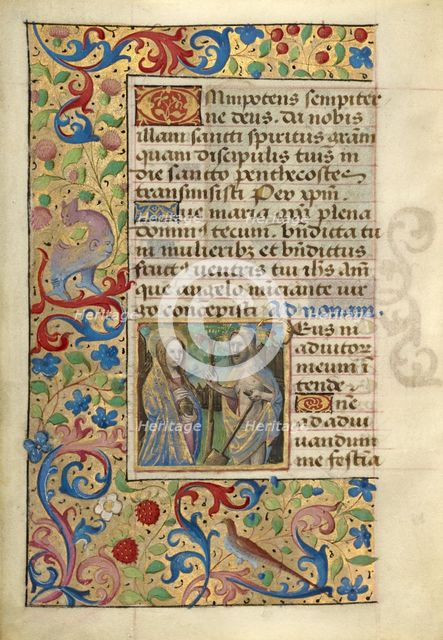 Omnipotens sempiter
ne deus. da nobis
illam sancti spiritus grām
quam discipulis tuis in
die sancto penthecostes
transmisisti Per xp̄m.
Aue maria grā plena
dominus tecum. bn̄dicta tu
in mulieribꝫ et bn̄dictus
fructus ventris tui ihs am̄
que angelo nunciante vir
go concepisti ad nonam.
Deus in
adiutor
meum in
tende
Dn̄e
ad adiu
uandum
me festina
Heritage Images
Heritage Images
Heritage Images